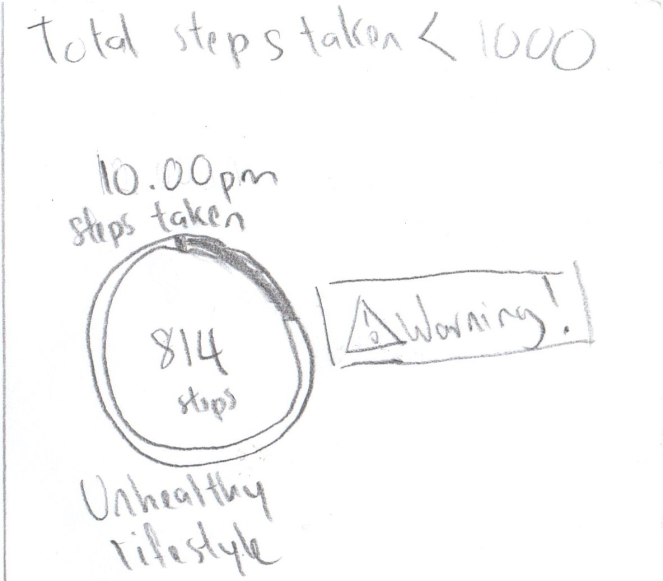 Total steps taken < 1000
10.00pm
steps taken
814
steps
Warning!
Unhealthy
lifestyle